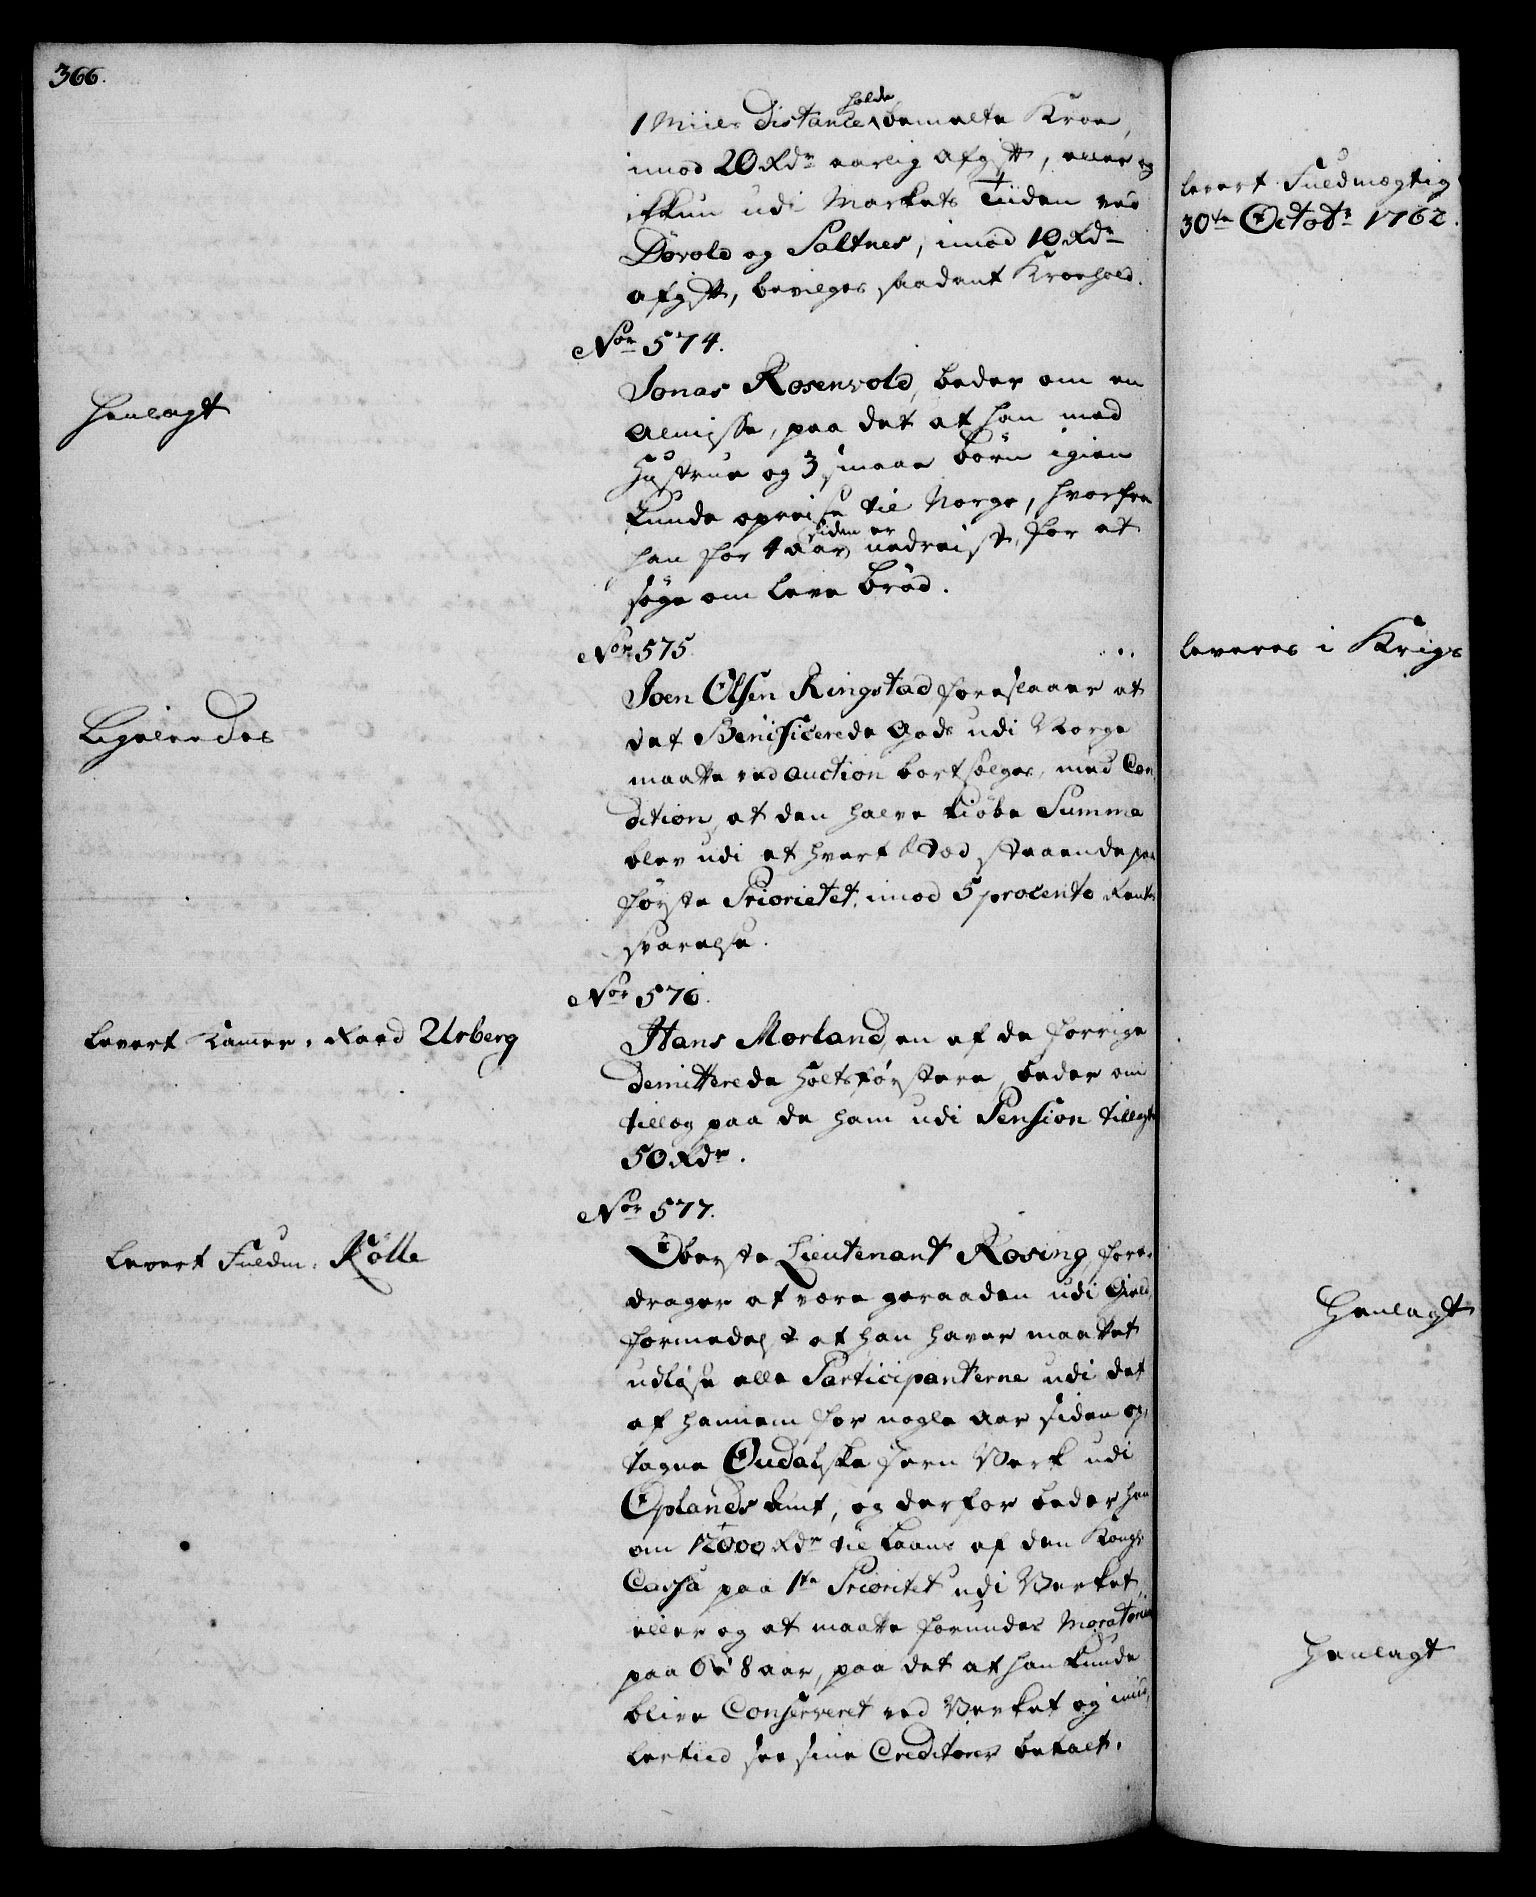 366.
1 Miils Distance holde bemelte Kroe,
imod 20 Rdr aarlig Afgift, eller og
ikkun udi Markets Tiiden ved
Dørold og Saltnes, imod 10 Rdr
afgift, bevilges saadant Kroehold.
Nor 574.
Henlagt
Jonas Rosenvold, beder om en
Almisse, paa det at han med
Hustrue og 3 smaae børn igien
kunde opreise til Norge, hvorfra
han for 4 Aar siden er nedreist, for at
søge om leve brød.
Nor 575.
Ligeleedes
Joen Olsen Ringstad foreslaaer at
det Beneficerede Gods udi Norge
maatte ved auction bortsælges, med Con,
dition, at den halve kiøbe Summa
blev udi et hvert Stød staaende paa
første Priorietet, imod 5 procento Rentes
svarelse.
Nor 576.
Levert Kamer-Raad Urberg
Hans Morland, en af de forrige
Demitterede Holtsførstere, beder om
tillæg paa de ham udi Pension tillagte
50 Rdr.
Nor 577.
Levert Fuldm: Rølle
Oberste Lieutenant Rosing, fore,
drager at være geraaden udi Gield,
formedelst at han haver maattet
udløse alle Participanterne udi det
af hannem for nogle Aar siden op,
tagne Oudalske Jern Verk udi
Oplands Amt, og derfor beder han
om 12000 Rdr til Laans af den Kongl.
Cassa paa 1te Prioritet udi Verket,
eller og at maatte forundes Moratorium
paa 6 à 8 aar, paa det at han kunde
blive Conserveret ved Verket og imid,
lertiid see sine Creditores betalt.
levert Fuldmægtig
30te Octobr 1762.
leveres i Krigs
Henlagt
Henlagt